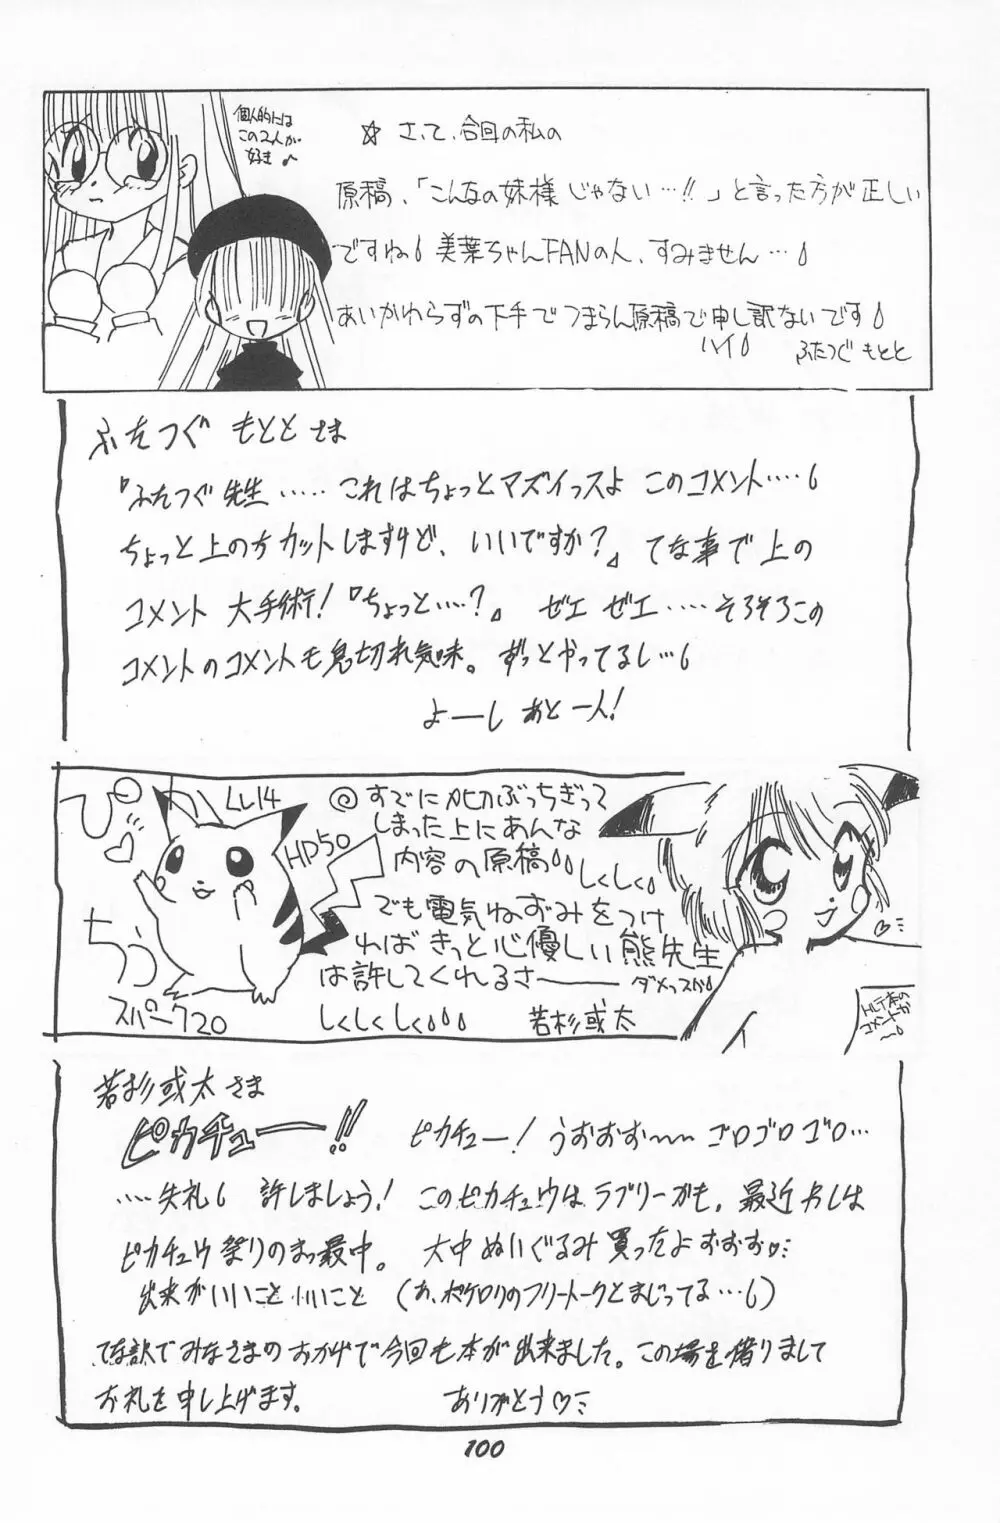 個人的には
この2人が
好き♪
☆ さ、て、今回の私の
原稿、「こんなの妹様じゃない…!!」と言った方が正しい
ですね 美葉ちゃんFANの人、すみません…
あいかわらずの下手でつまらん原稿で申し訳ないです
ハイ
ふたつぐ もとと
ふたつぐ もとと さま
『ふたつぐ先生……これはちょっとマズイっスよ このコメント……
ちょっと上の方カットしますけど、いいですか?』てな事で上の
コメント 大手術!『ちょっと……?』 ゼエ ゼエ……そろそろこの
コメントのコメントも息切れ気味。ずっとやってるし…
よーし あと一人!
ぴ
ちう
LV14
HP50
スパーク20
◎すでに〆切ぶっちぎって
しまった上にあんな
内容の原稿
しくしく
でも電気ねずみをつけ
ればきっと心優しい熊先生
は許してくれるさー
ダメっスか
しくしくしく
若杉或太
イ
若杉或太さま
ピカチュー!!
ピカチュー! うおおお〜〜 ゴロゴロゴロ…
……失礼 許しましょう! このピカチュウはラブリーかも。最近わしは
ピカチュウ祭りのまっ最中。 大中ぬいぐるみ買ったよおおお♡
出来がいいこといいこと (あ、ポケロリのフリートークとまじってる…)
てな訳でみなさまのおかげで今回も本が出来ました。この場を借りまして
お礼を申し上げます。 ありがとう♡
100